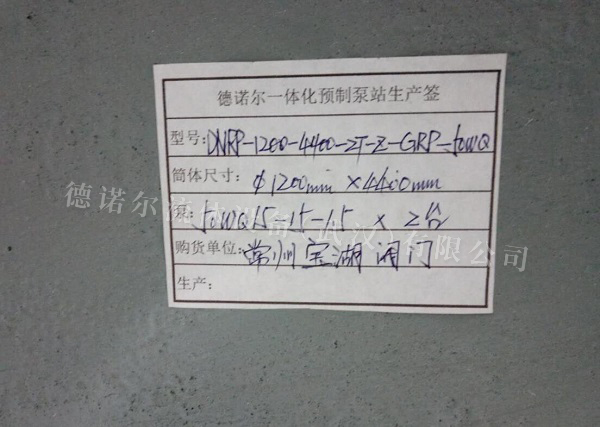 德诺尔一体化预制泵站生产签
型号: DNRP-1200-4400-2T-Z-GRP-50WQ
筒体尺寸: φ1200mm×4400mm
泵: 50WQ15-15-1.5 × 2台
购货单位: 常州宝湖阀门
生产:
德诺尔流体设备(武汉)有限公司